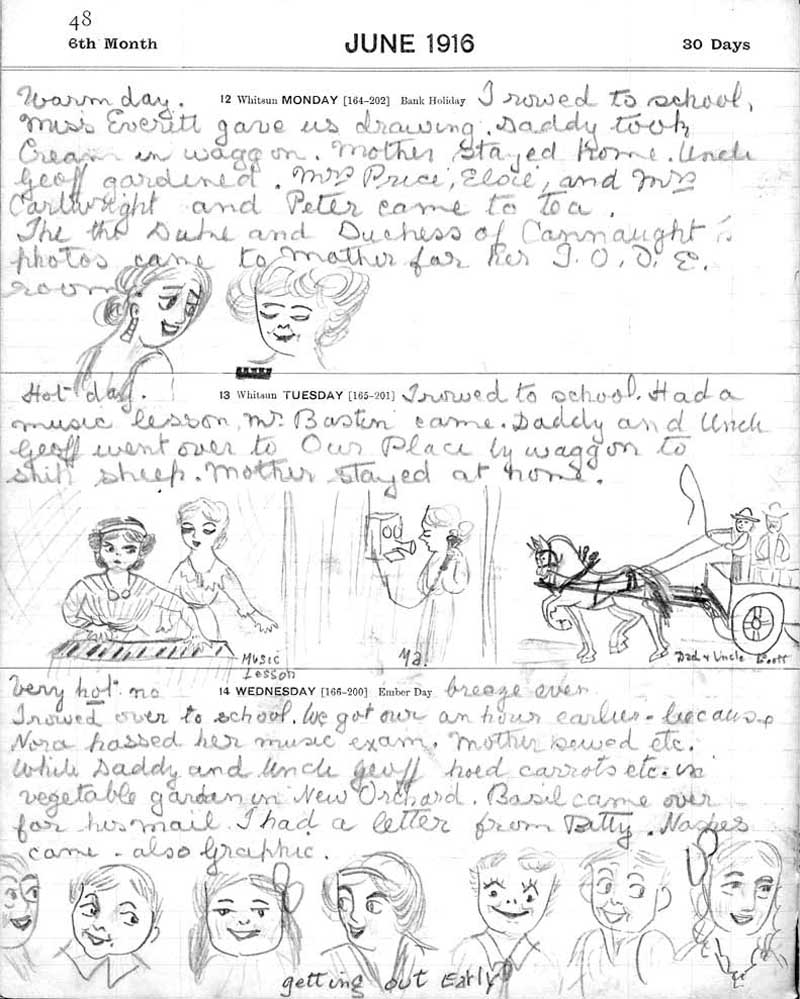 48
6th Month JUNE 1916 30 Days
Warm day. 12 Whitsun MONDAY [164-202] Bank Holiday I rowed to school,
Miss Everett gave us drawing. Daddy took
Cream in waggon. Mother stayed home. Uncle
Geoff gardened. Mrs Price, Elsie, and Mrs
Cartwright and Peter came to tea.
The the Duke and Duchess of Cannaught's
photos came to Mother for her I.O.D.E.
room.
Hot day. 13 Whitsun TUESDAY [165-201] I rowed to school. Had a
music lesson. Mr. Basten came. Daddy and Uncle
Geoff went over to Our Place by waggon to
ship sheep. Mother stayed at home.
Music
Lesson
Ma.
Dad & Uncle Geoff
Very hot no 14 WEDNESDAY [166-200] Ember Day breeze even
I rowed over to school. We got our an hour earlier - because
Nora passed her music exam. Mother sewed etc.
While Daddy and Uncle Geoff hoed carrots etc. in
vegetable garden in New Orchard. Basil came over
for his mail. I had a letter from Betty.
came - also Graphic.
getting out Early